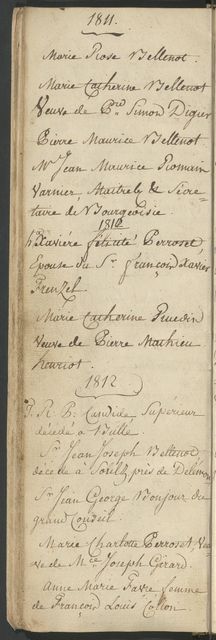 1811.
Marie Rose Bellenot.
Marie Catherine Bellenot
Veuve de Simon Digier
Pierre Maurice Bellenot
Mr Jean Maurice Romain
Varnier, Maitrely & Secre-
taire de Bourgeoisie.
1812
Xaviére félicité Perroset
Epouse du Sr. françois Xavier
Frenzel
Marie Catherine Ruedin
Veuve de Pierre Mathieu
henriot.
1812
R. P. Candide Supérieur
décédé à Bulle.
Sr. Jean Joseph Bellenot,
décédé à près de Delémon
Sr. Jean George Bonjour du
grand Conseil.
Marie Charlotte Perroset, Veu-
ve de Joseph Girard.
Anne Marie Favre femme
de François Louis Collon.